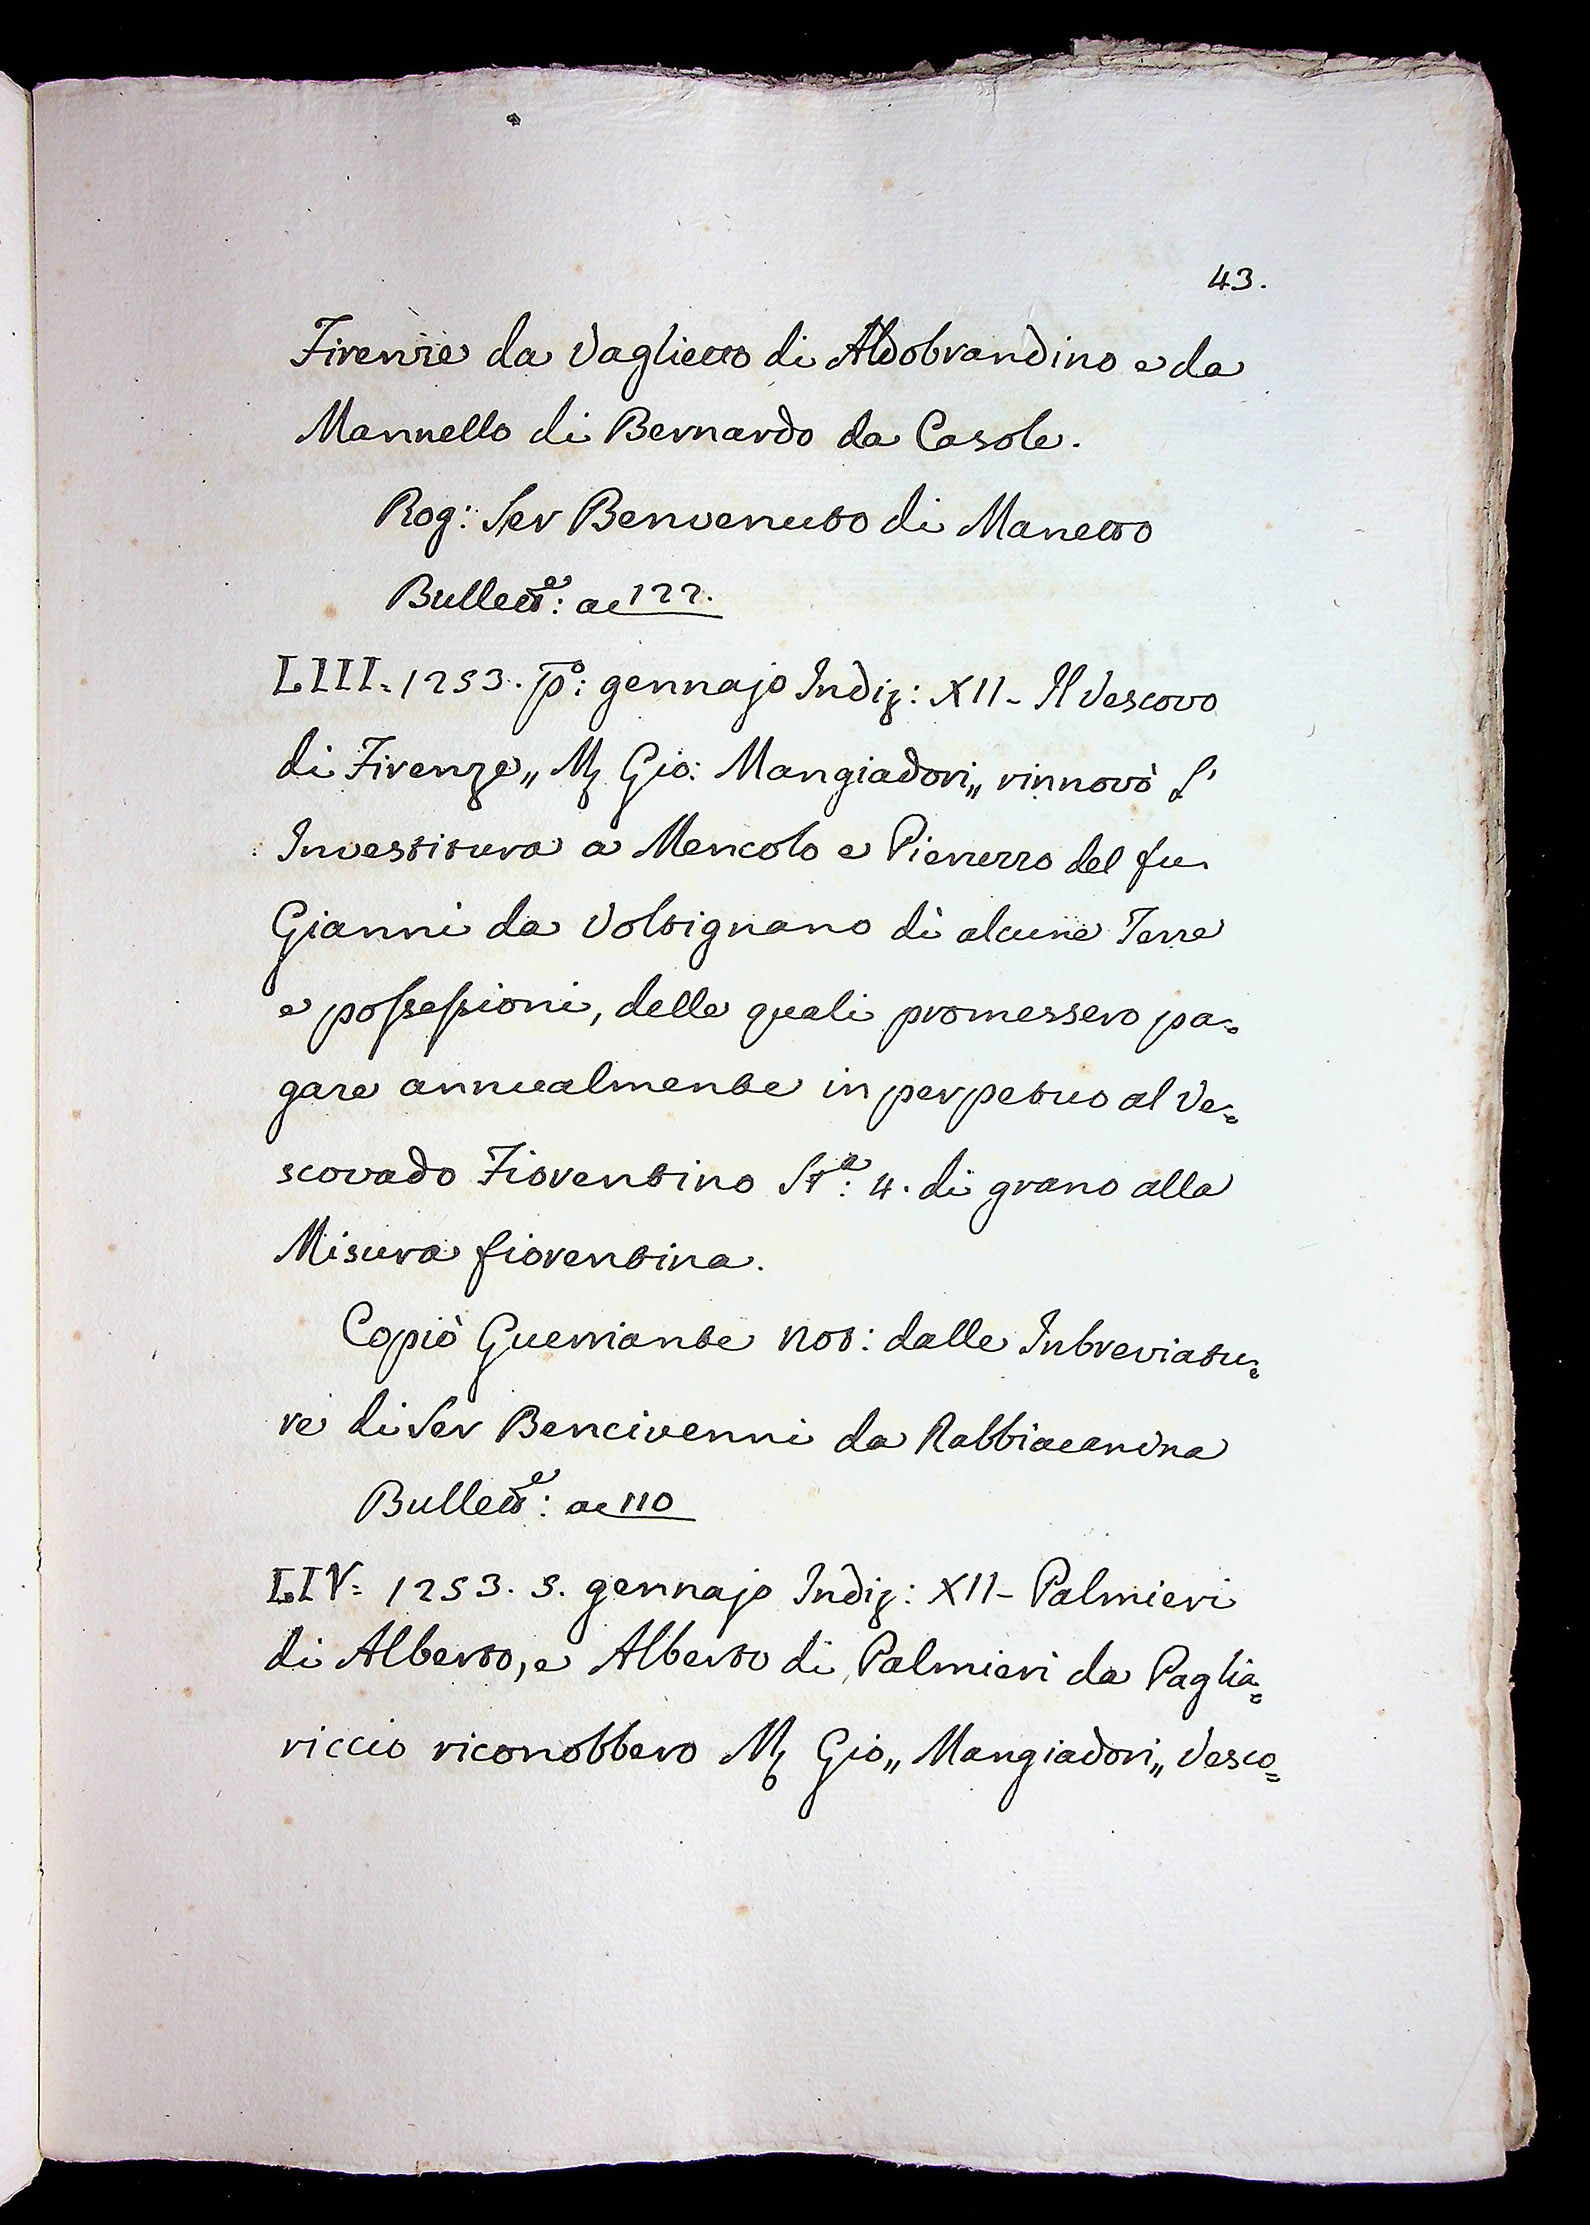 43.
Firenze da Vaglietto di Aldobrandino e da
Mannello di Bernardo da Casole.
Rog: Ser Benvenuto di Manetto
Bullett.e: ac 122.
LIII. 1253. p.o: gennajo Indiz: XII - Il Vescovo
di Firenze „ M. Gio: Mangiadori „ rinnovò l'
Investitura a Mencolo e Pieruzzo del fu
Gianni da Voltignano di alcune Terre
e possessioni, delle quali promessero pa=
gare annualmente in perpetuo al Ve=
scovado Fiorentino St.a: 4. di grano alla
Misura fiorentina.
Copiò Guerriante not: dalle Inbreviatu=
re di Ser Bencivenni da Rabbiacanina
Bullett.e: ac 110
LIV= 1253. 5. gennajo Indiz: XII - Palmieri
di Alberto, e Alberto di Palmieri da Paglia=
riccio riconobbero M. Gio „ Mangiadori „ Vesco=